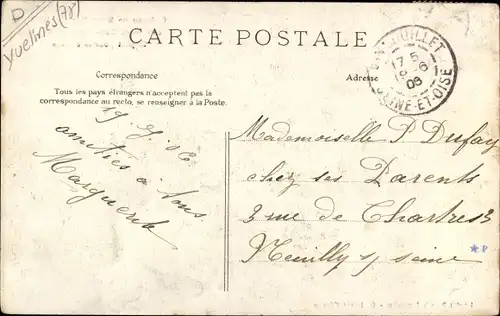 D
Yvelines (78)
CARTE POSTALE
Correspondance
Adresse
Tous les pays étrangers n'acceptent pas la
correspondance au recto, se renseigner à la Poste.
amitiés à tous
Marguerite
RAMBOUILLET
17 5
09
SEINE-ET-OISE
Mademoiselle P Dufay
chez ses Parents
3 rue de Chartres 3
Neuilly s/ seine
* P